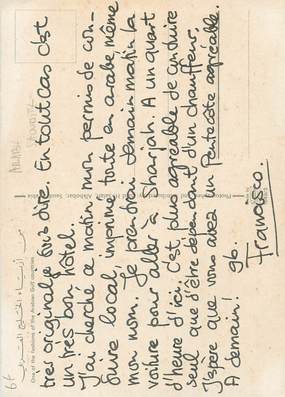 très original je suis dire. En tout cas c'est
un très bon hôtel.
J'ai cherché ce matin mon permis de con-
duire local, imprimé toute en arabe, même
mon nom. Je prendrai demain matin la
voiture pour aller à Sharjah. A un quart
d'heure d'ici. c'est plus agréable de conduire
seul que d'être dépendant d'un chauffeur.
J'espère que vous avez un Pentecôte agréable.
A demain! gb.
Francesco.
من أزياء الخليج العربي
One of the fashions of the Arabian Gulf countries